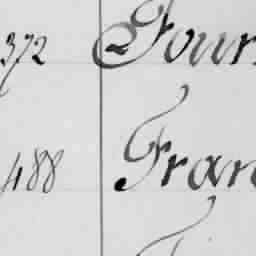 372 Four
488 Fran